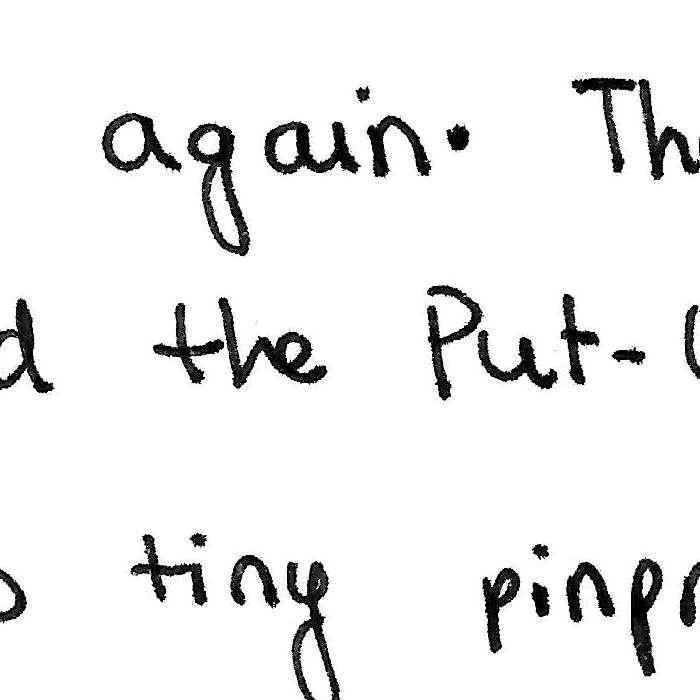 again. Th
d the Put-
tiny pinp